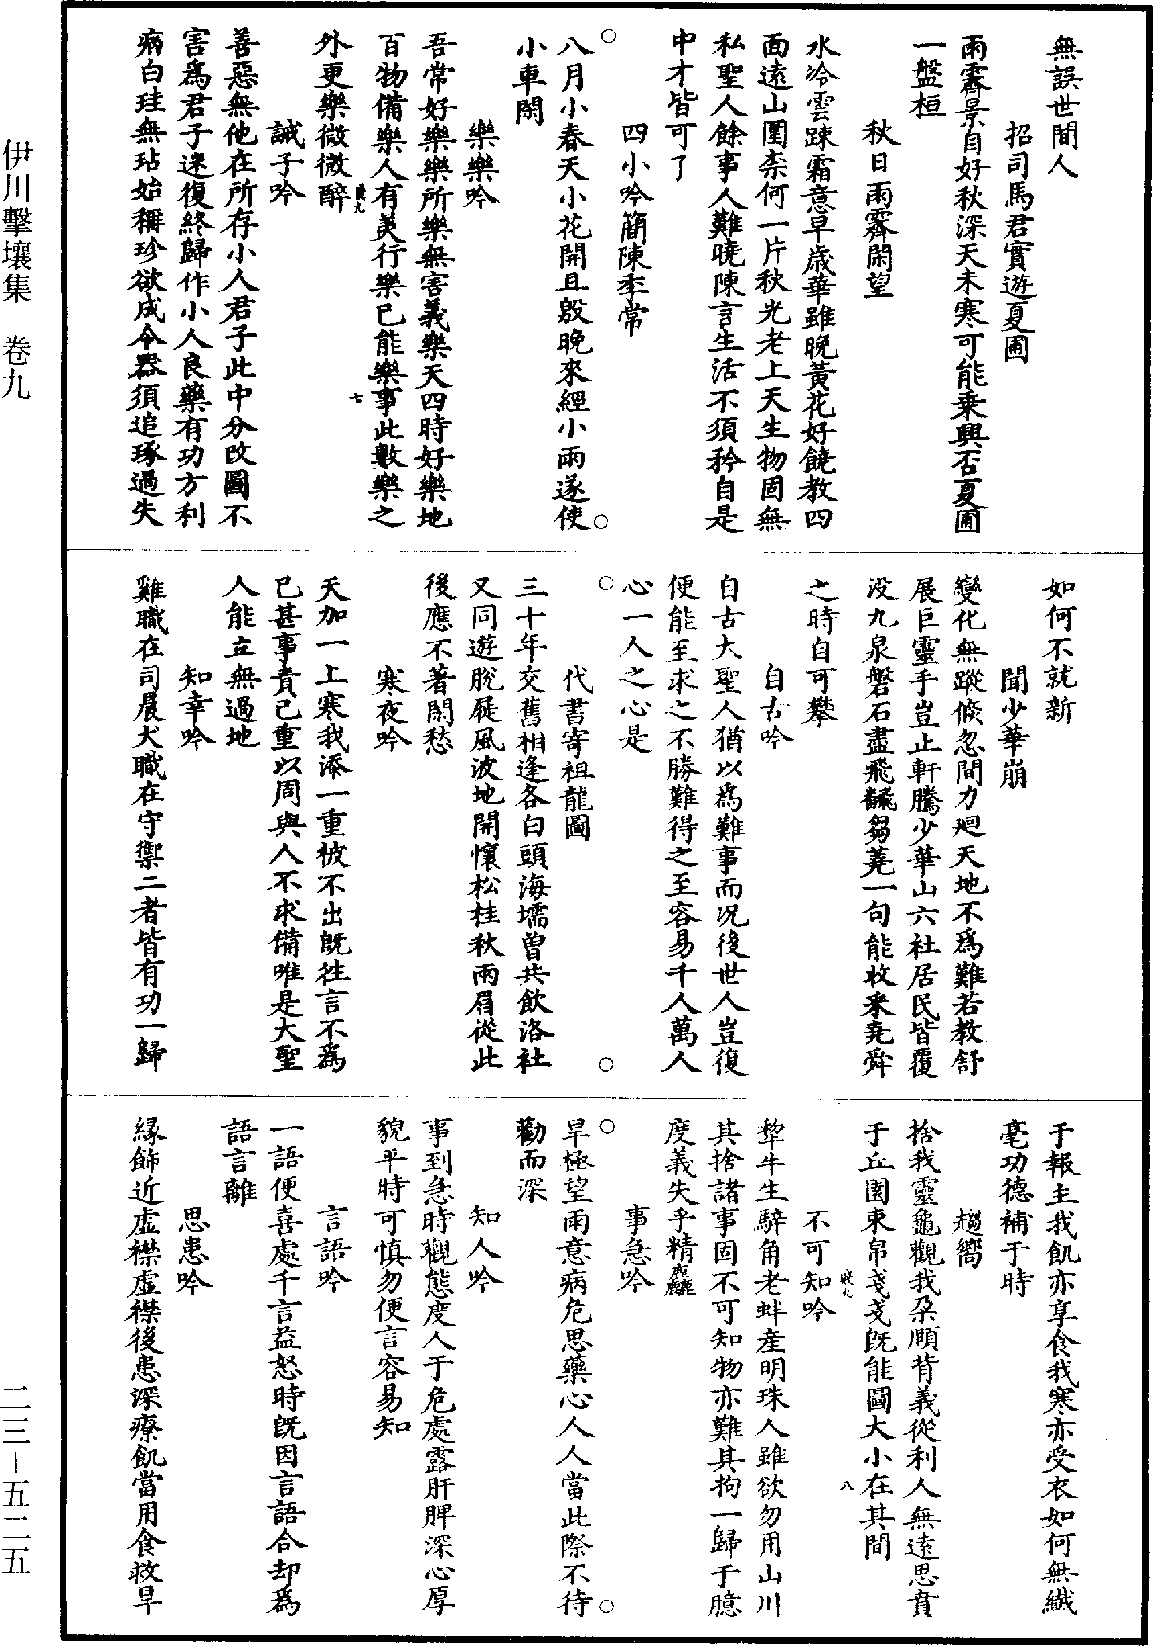 無誤世間人
招司馬君實遊夏圃
雨霽景自好秋深天未寒可能乘興否夏圃
一盤桓
秋日雨霽閑望
水冷雲踈霜意早歲華雖晚黃花好饒教四
面遠山圍柰何一片秋光老上天生物固無
私聖人餘事人難曉陳言生活不須矜自是
中才皆可了
四小吟簡陳季常
八月小春天小花開且殷晚來經小雨遂使
小車閑
樂樂吟
吾常好樂樂所樂無害義樂天四時好樂地
百物備樂人有美行樂己能樂事此數樂之
外更樂微微醉
誡子吟
善惡無他在所存小人君子此中分改圖不
害爲君子迷復終歸作小人良藥有功方利
病白珪無玷始稱珍欲成令器須追琢過失
如何不就新
聞少華崩
變化無蹤倐忽間力迴天地不爲難若教舒
展巨靈手豈止軒騰少華山六社居民皆覆
没九泉磐石盡飛飜芻蕘一句能收采堯舜
之時自可攀
自古吟
自古大聖人猶以爲難事而况後世人豈復
便能至求之不勝難得之至容易千人萬人
心一人之心是
代書寄祖龍圖
三十年交舊相逢各白頭海壖曽共飲洛社
又同遊脫屣風波地開懷松桂秋兩眉從此
後應不著閑愁
寒夜吟
天加一上寒我添一重被不出既徃言不爲
已甚事責己重以周與人不求備唯是大聖
人能立無過地
知幸吟
雞職在司晨犬職在守禦二者皆有功一歸
于報主我飢亦享食我寒亦受衣如何無纖
毫功德補于時
趨嚮
捨我靈龜觀我朶頤背義從利人無遠思賁
于丘園束帛戔戔既能圖大小在其間
不可知吟
犂牛生騂角老蚌産明珠人雖欲勿用山川
其捨諸事固不可知物亦難其拘一歸于臆
度義失乎精麤
事急吟
旱極望雨意病危思藥心人人當此際不待
勸而深
知人吟
事到急時觀態度人于危處露肝脾深心厚
貌平時可愼勿便言容易知
言語吟
一語便喜處千言益怒時既因言語合却爲
語言離
思患吟
緣飾近虛襟虛襟後患深療飢當用食救旱
伊川擊壤集　卷九
二三－五二五